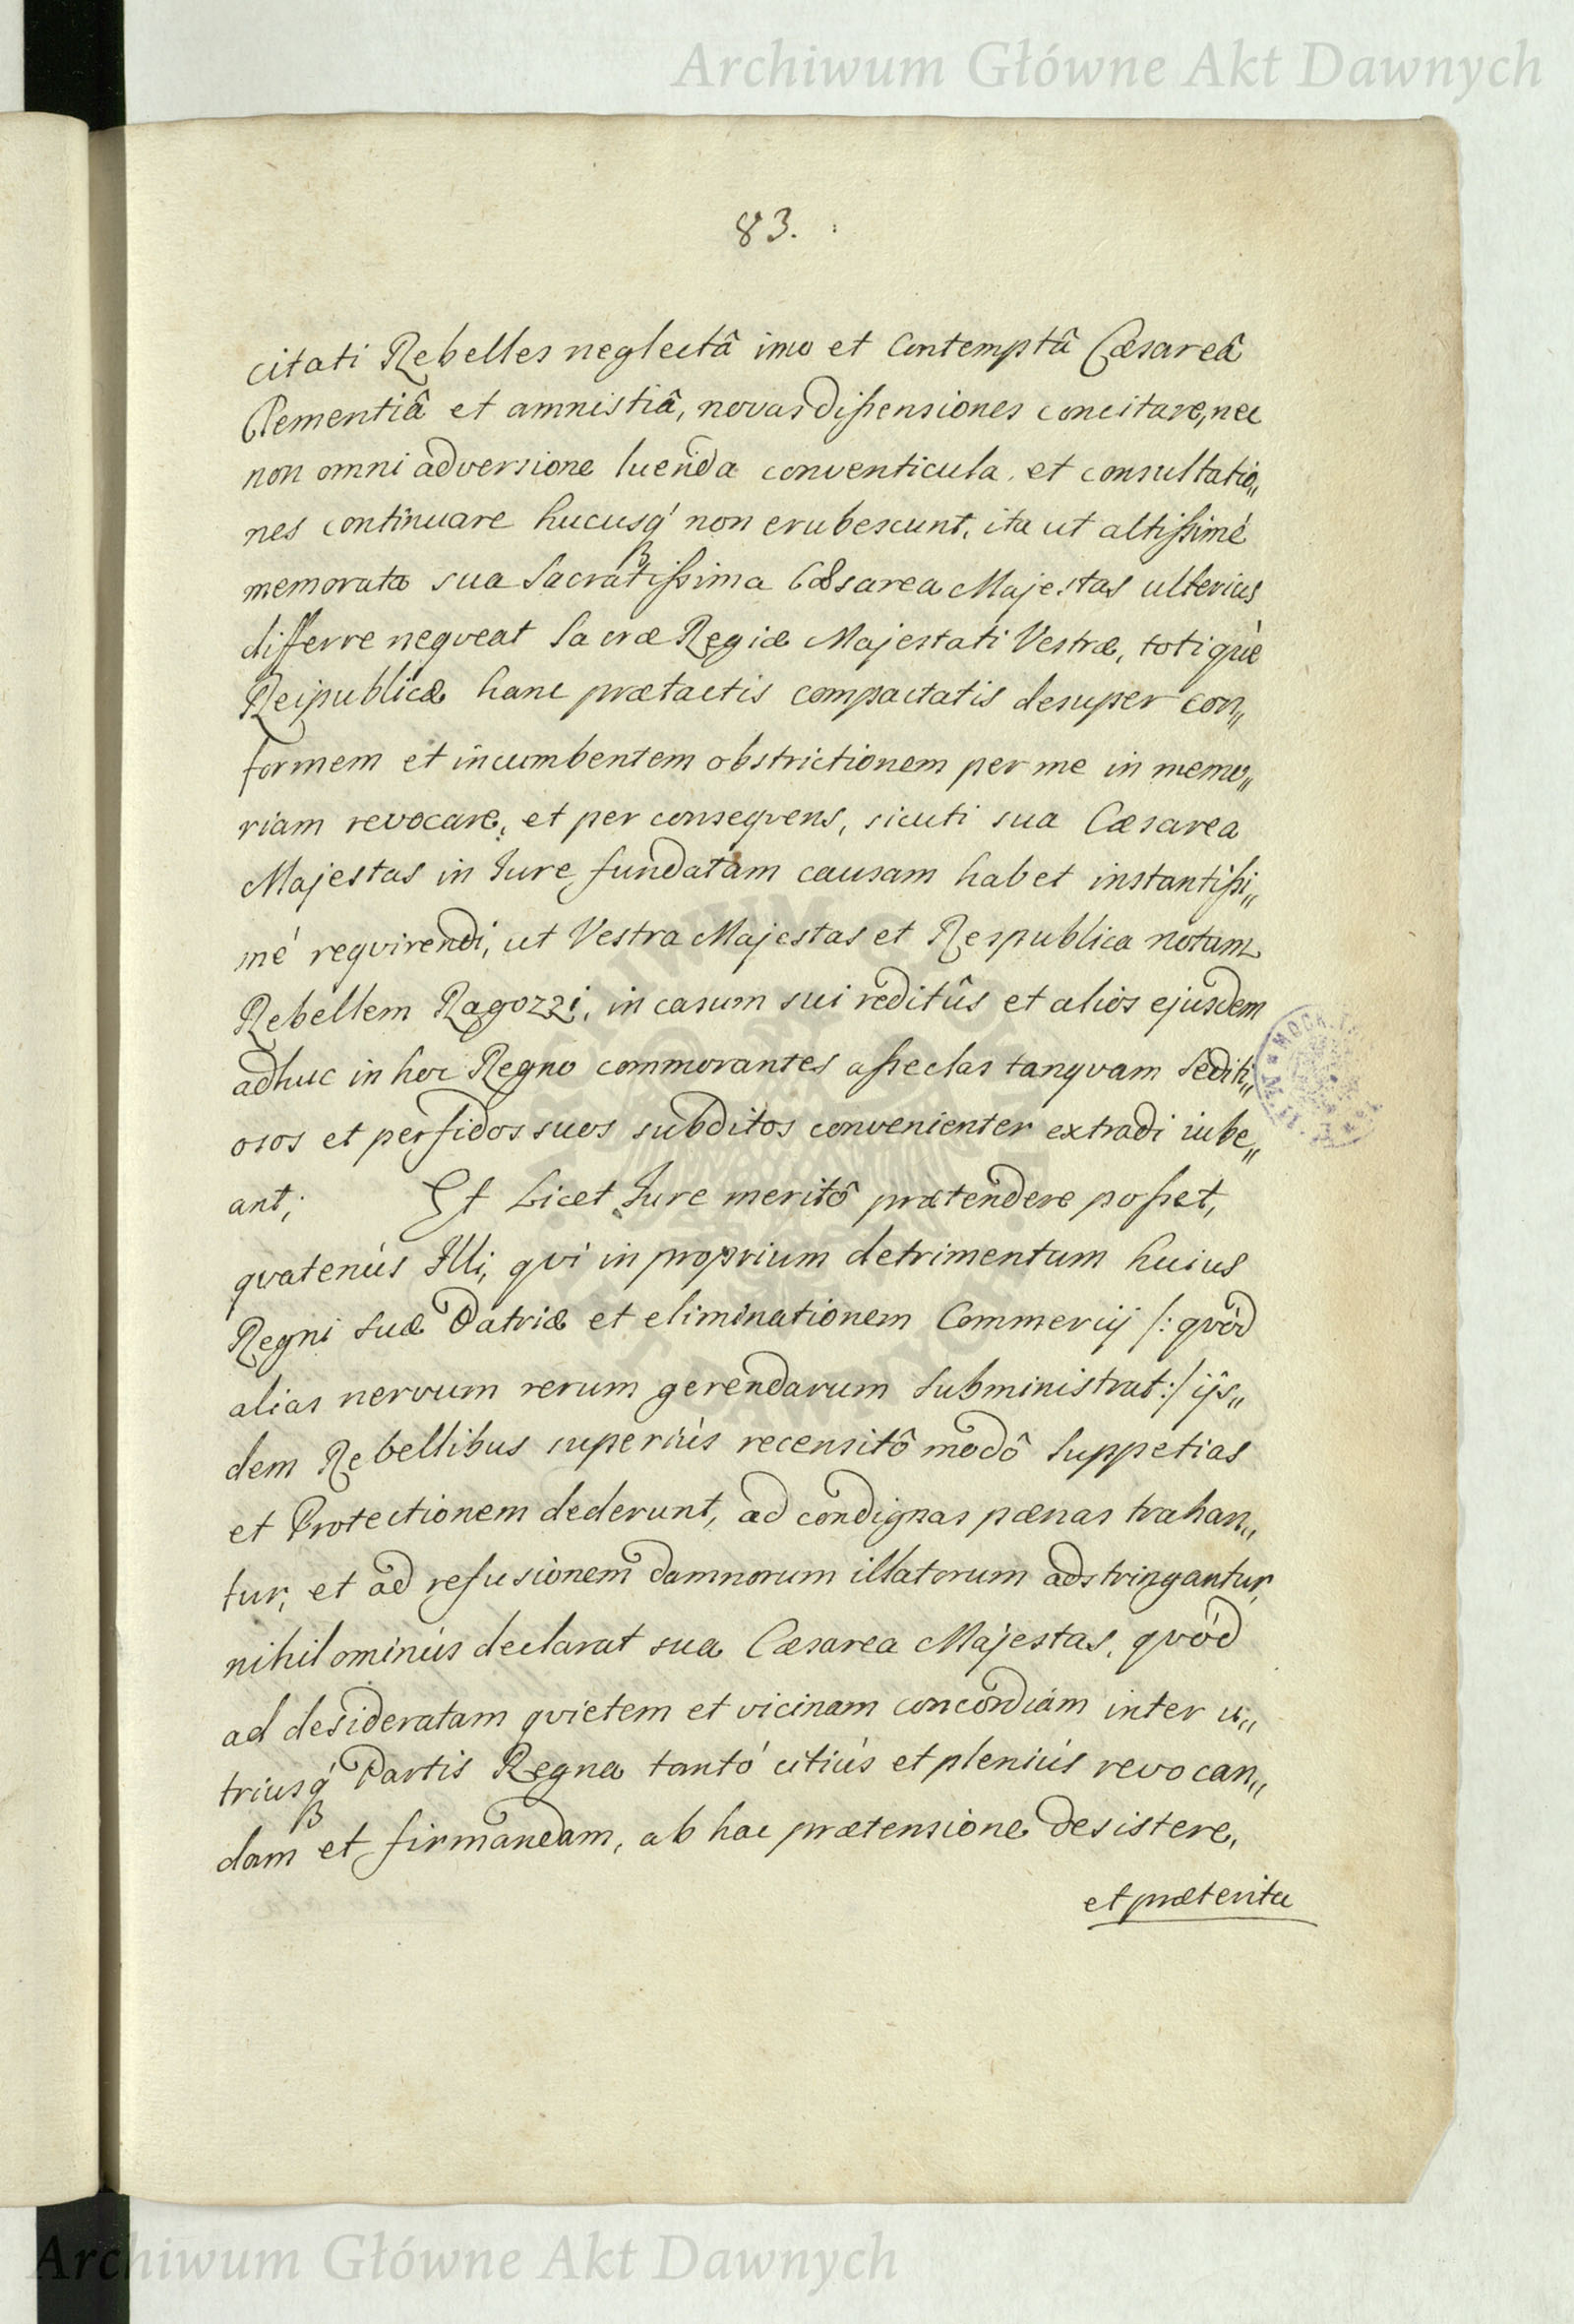 Archiwum Główne Akt Dawnych
83. :
citati Rebelles neglectâ imo et Contemptâ Cæsareâ
Clementiâ et amnistiâ, novas dißensiones concitare, nec
non omni adversione luenda conventicula, et consultatio„
nes continuare hucusq́ non erubescunt, ita ut altißimè
memorata sua Sacratißima Cæsarea Majestas ulterius
differre neqveat Sacræ Regiæ Majestati Vestræ, totiq̀ue
Reipublicæ hanc prætactis compactatis desuper con„
formem et incumbentem obstrictionem per me in memo„
riam revocare, et per conseqvens, sicuti sua Cæsarea
Majestas in Jure fundatam causam habet instantißi„
mé reqvirendi, ut Vestra Majestas et Respublica notam
Rebellem Ragozzi, in casum sui reditûs et alios ejusdem
adhuc in hoc Regno commorantes aßeclas tanqvam Sediti„
osos et perfidos suos subditos convenienter extradi iube„
ant; Et Licet Jure meritô prætendere poßet,
qvatenùs Illi, qvi in proprium detrimentum huius
Regni suæ Patriæ et eliminationem Commercij /: qvòd
alias nervum rerum gerendarum subministrat :/ ijs„
dem Rebellibus superiùs recensitô modô Suppetias
et Protectionem dederunt, ad condignas pænas trahan„
tur, et ad refusionem damnorum illatorum adstringantur,
nihilominùs declarat sua Cæsarea Majestas, qvòd
ad desideratam qvietem et vicinam concordiam inter u„
triusq́ Partis Regna tantó citiùs et pleniùs revocan„
dam et firmandam, ab hac prætensione desistere,
et præterita
Archiwum Główne Akt Dawnych